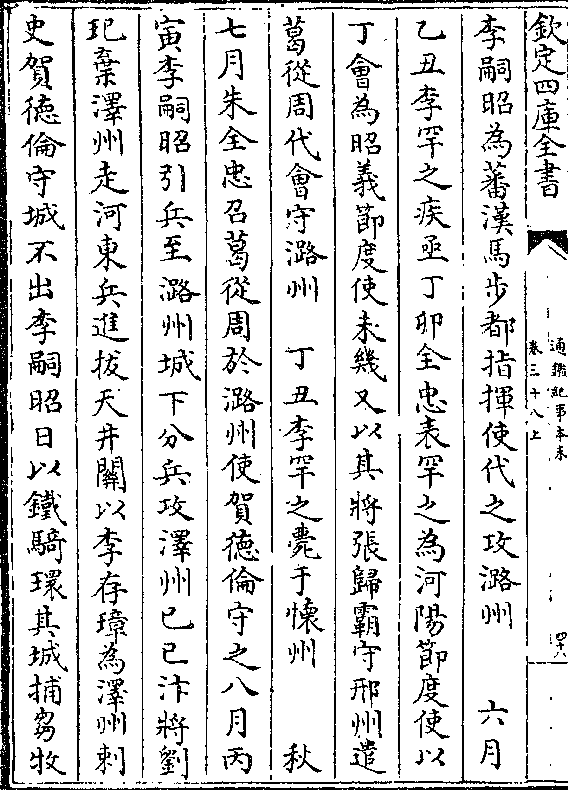 欽定四庫全書
通鑑紀事本末
卷三十八上
四十八
李嗣昭為蕃漢馬步都指揮使代之攻潞州　六月
乙丑李罕之疾亟丁卯全忠表罕之為河陽節度使以
丁會為昭義節度使未幾又以其將張歸霸守邢州遣
葛從周代會守潞州　丁丑李罕之薨于懷州　秋
七月朱全忠召葛從周於潞州使賀德倫守之八月丙
寅李嗣昭引兵至潞州城下分兵攻澤州已已汴將劉
玘棄澤州走河東兵進拔天井關以李存璋為澤州刺
史賀德倫守城不出李嗣昭日以鐵騎環其城捕芻牧